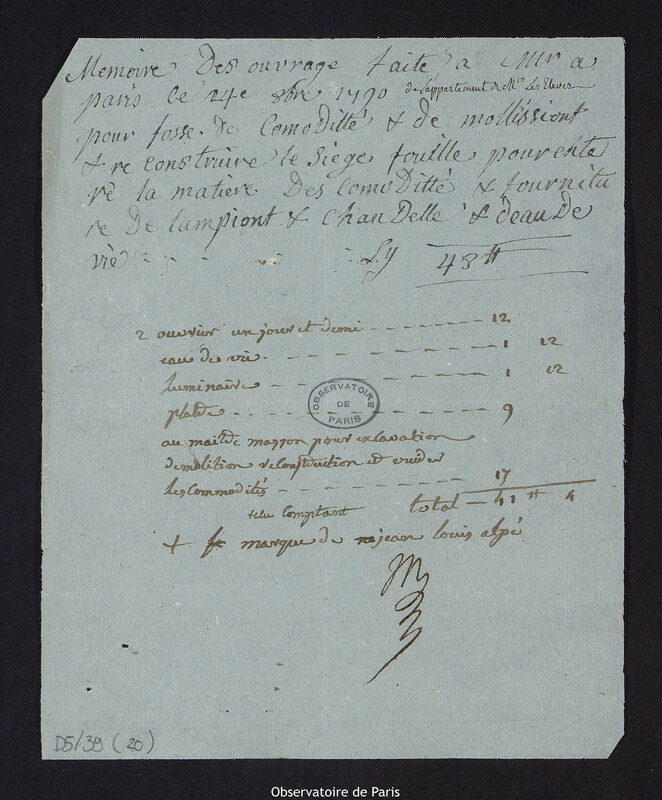 Memoire Des ouvrage faite a Mr a
paris ce 24e 8bre 1790 de l'appartement de Mrs Les Eleves
pour fosse De Comoditté & de mollissiont
& re construire le Siege fouille pour ente
re la matière Des Comoditté & fournitu
re De lampiont & chanDelle & d'eau De
vie - - - - - Ly 48 ₶
2 ouvrier un jour et demi - - - - - - 12
eau de vie - - - - - - 1 12
luminaire - - - - - - 1 12
platre - - - - - - 9
au maitre masson pour excavation
demolition reconstruction et vuider
les commodités - - - - - - 17
total - 41 ₶ 4
recu comptant
+ marque de jean louis alpé
OBSERVATOIRE DE PARIS
D5/39 (20)
Observatoire de Paris